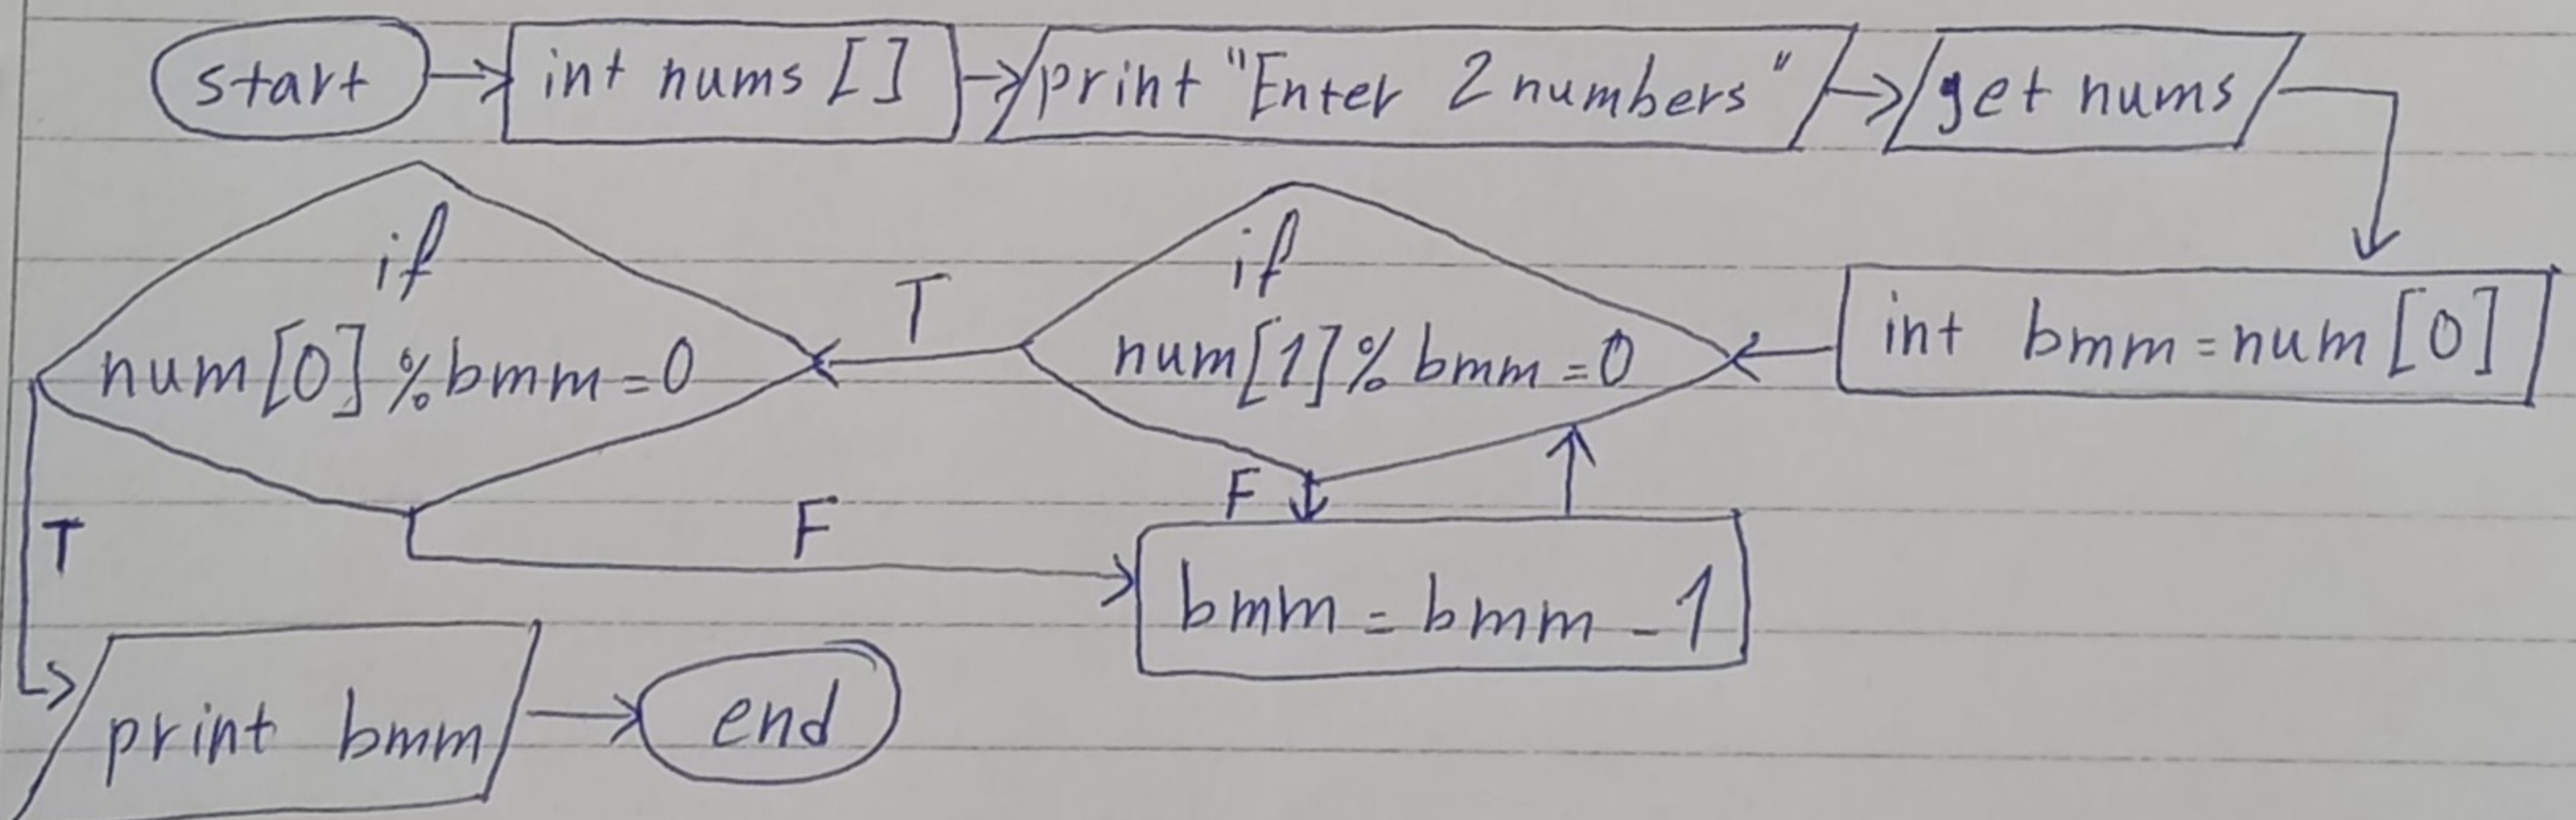 start
int nums []
print "Enter 2 numbers"
get nums
int bmm = num [0]
if
num[1] % bmm = 0
T
F
if
num[0] % bmm = 0
F
T
bmm = bmm - 1
print bmm
end